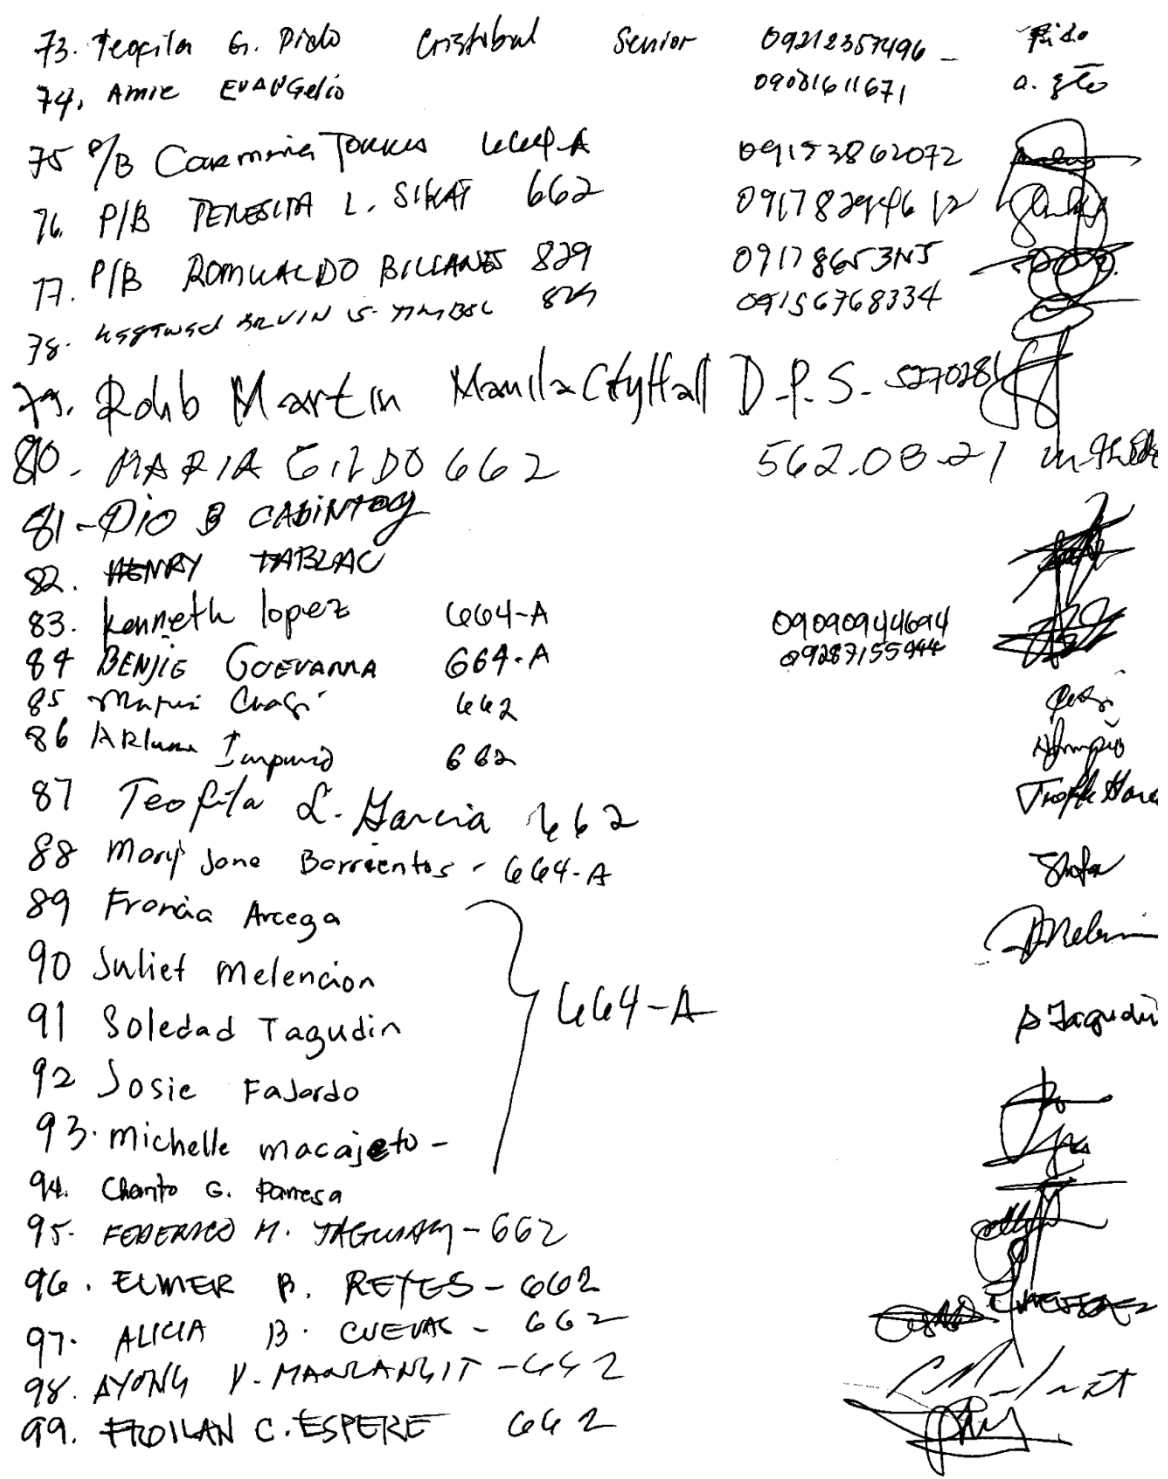 73. Teofila G. Pido Cristobal Senior 09212357496 Pido
74. Amie Evangelio 09081611671
75 P/B Carmina Torres 664-A 09153862072
76. P/B TERESITA L. SIKAT 662
77. P/B ROMUALDO BILLANES 829
78. 829 09156768334
79. Robb Martin Manila CityHall D.P.S. 5270281
80. MARIA GILDO 662 562.08.21
81 - DIO B CABINTOY
82. HENRY TABLAC
83. Kenneth lopez 664-A 09090944694
84 BENJIE GUEVARRA 664-A 09287155944
85 662
86 662
87 Teofila L. Garcia 662
88 Mary Jane Barrientos - 664-A
89 Francia Arcega
90 Juliet Melencion
91 Soledad Tagudin 664-A S Tagudin
92 Josie Fajardo
93. Michelle macajeto -
94. Charito G. Panesa
95. FEDERICO M. - 662
96. ELMER B. REYES - 662
97. ALICIA B. CUEVAS - 662
98. AYONG V. MANLANGIT - 662
99. FROILAN C. ESPERE 662